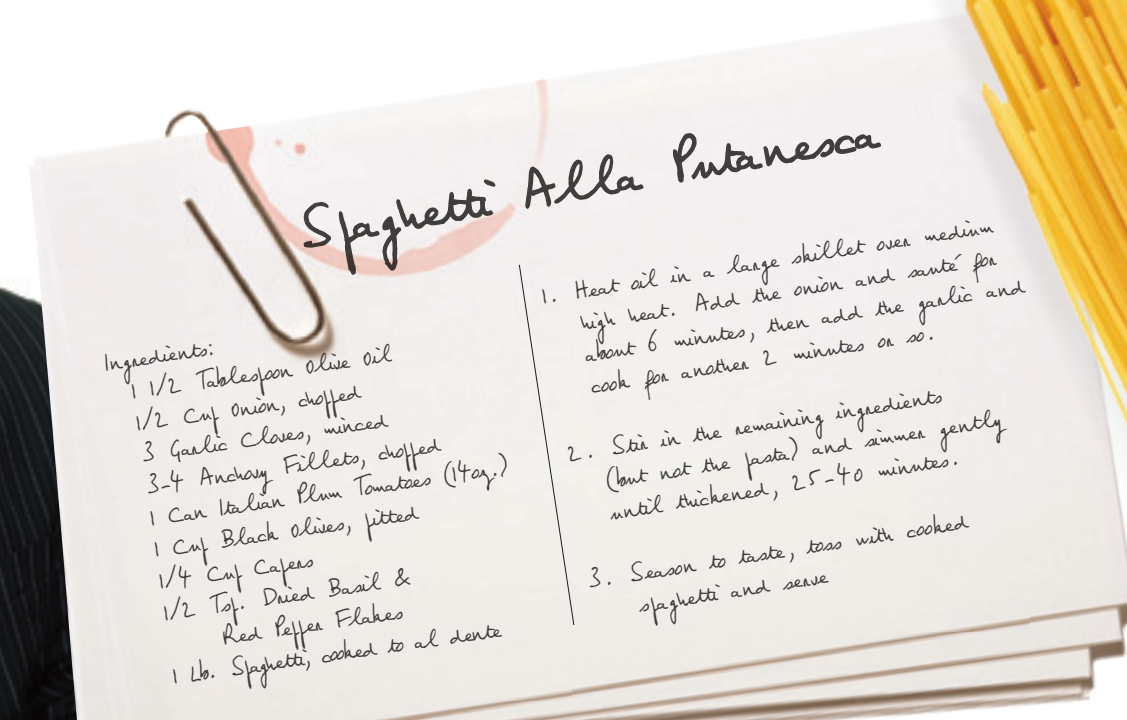 Spaghetti Alla Putanesca
Ingredients:
1 1/2 Tablespoon Olive Oil
1/2 Cup Onion, chopped
3 Garlic Cloves, minced
3-4 Anchovy Fillets, chopped
1 Can Italian Plum Tomatoes (14oz.)
1 Cup Black Olives, pitted
1/4 Cup Capers
1/2 Tsp. Dried Basil &
Red Pepper Flakes
1 Lb. Spaghetti, cooked to al dente
1. Heat oil in a large skillet over medium
high heat. Add the onion and sauté for
about 6 minutes, then add the garlic and
cook for another 2 minutes or so.
2. Stir in the remaining ingredients
(but not the pasta) and simmer gently
until thickened, 25-40 minutes.
3. Season to taste, toss with cooked
spaghetti and serve